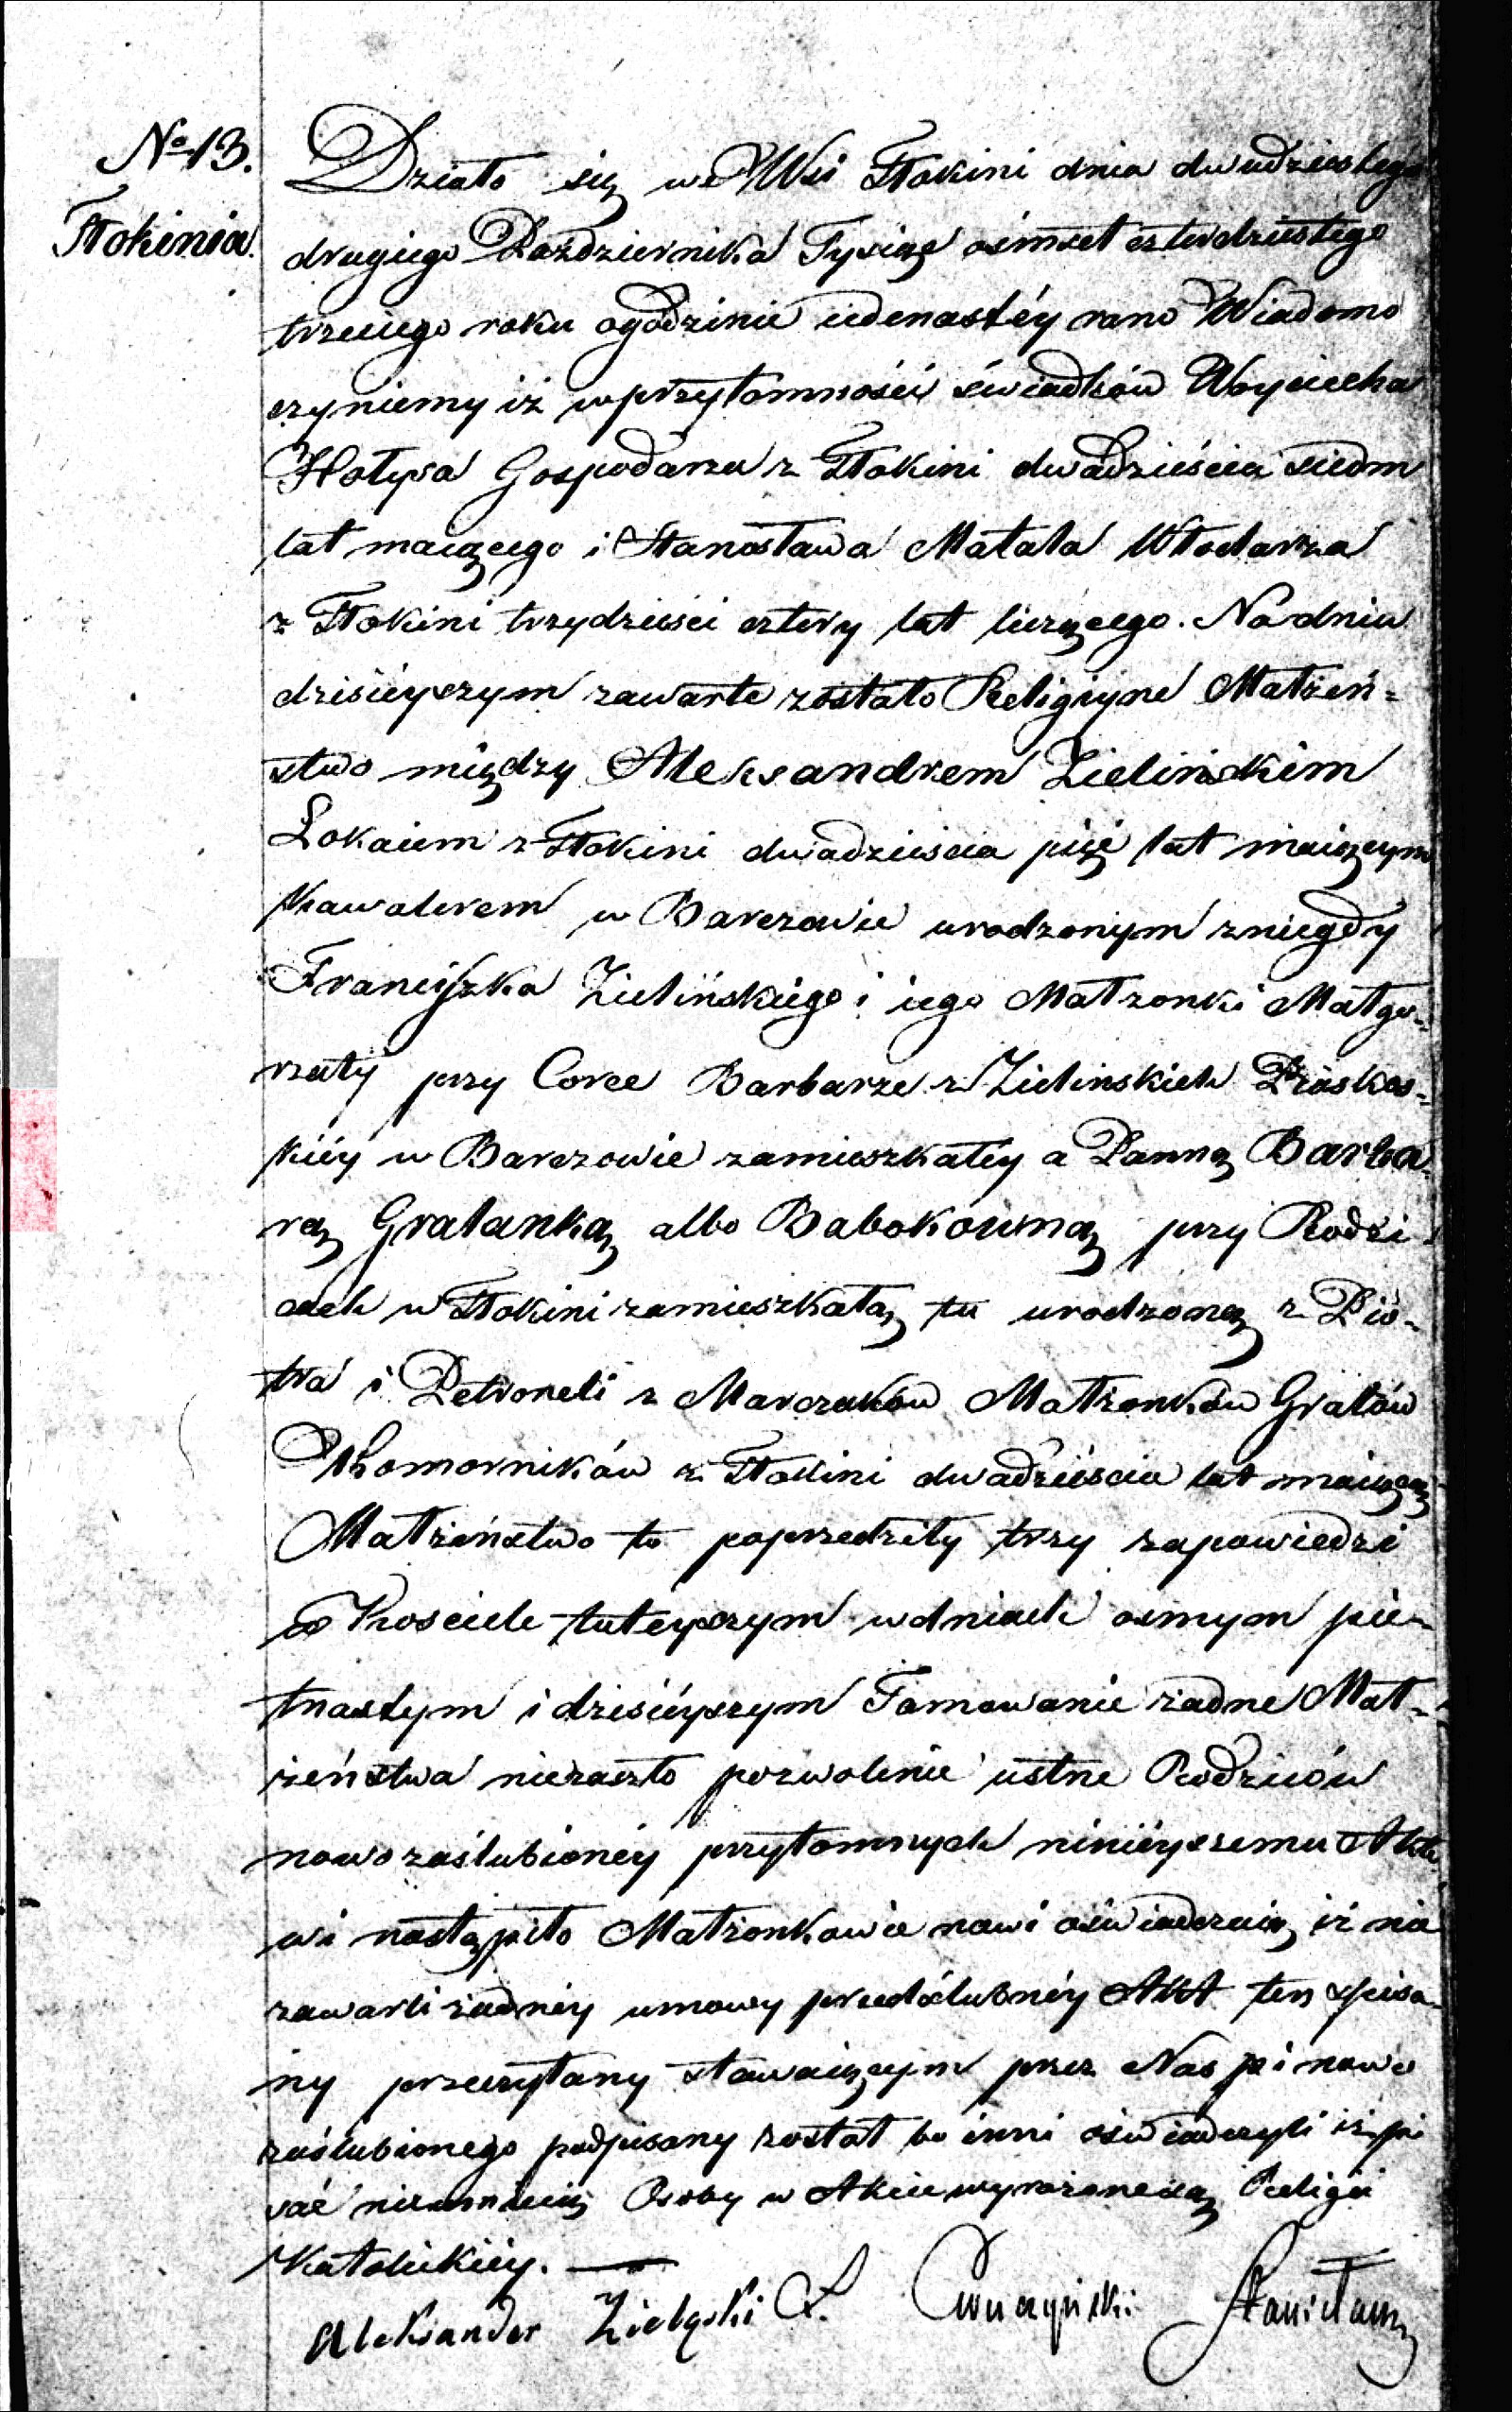 No 13.
Tłokinia.
Działo się we Wsi Tłokini dnia dwudziestego
drugiego Października Tysiąc osmset czterdziestego
trzeciego roku ogodzinie iedenastéy rano Wiadomo
czyniemy iż wprzytomności świadków Woyciecha
Hołysa Gospodarza z Tłokini dwadzieścia siedm
lat maiącego i Stanisława Matała Włodarza
z Tłokini trzydzieści cztery lat liczącego. Na dniu
dzisiéyszym zawarte zostało Religiyne Małżeń-
stwo między Aleksandrem Zielińskim
Lokaiem z Tłokini dwadzieścia pięć lat maiącym
Kawalerem w Barczewie urodzonym zniegdy
Franciszka Zielińskiego i iego Małżonki Małgo-
rzaty przy Corce Barbarze z Zielińskich Piaskos-
kiéy w Barczewie zamieszkałéy a Panną Barba-
rą Gralanką albo Babokowną przy Rodzi-
cach w Tłokini zamieszkałą tu urodzoną z Pio-
tra i Petroneli z Marczaków Małżonków Gralów
Komorników z Tłokini dwadzieścia lat maiącą
Małżeństwo to poprzedziły trzy zapowiedzi
w Kosciele tuteyszym wdniach osmym pie-
tnastym i dzisiéyszym Tamowanie żadne Mał-
żeństwa niezaszło pozwolenie ustne Rodziców
nowo zaślubionéy przytomnych ninieyszemu Akto
wi nastąpiło Małżonkowie nowi oświadczaią iż nie
zawarli żadnéy umowy przedślubnéy Akt ten spisa-
ny przeczytany stawaiącym przez Nas i nowo
zaślubionego podpisany został bo inni oświadczyli iż pi
sać nieumieią Osoby w Akcie wyrażone są Religii
Katolickiéy.
Aleksander Zielęski X. Stanisław